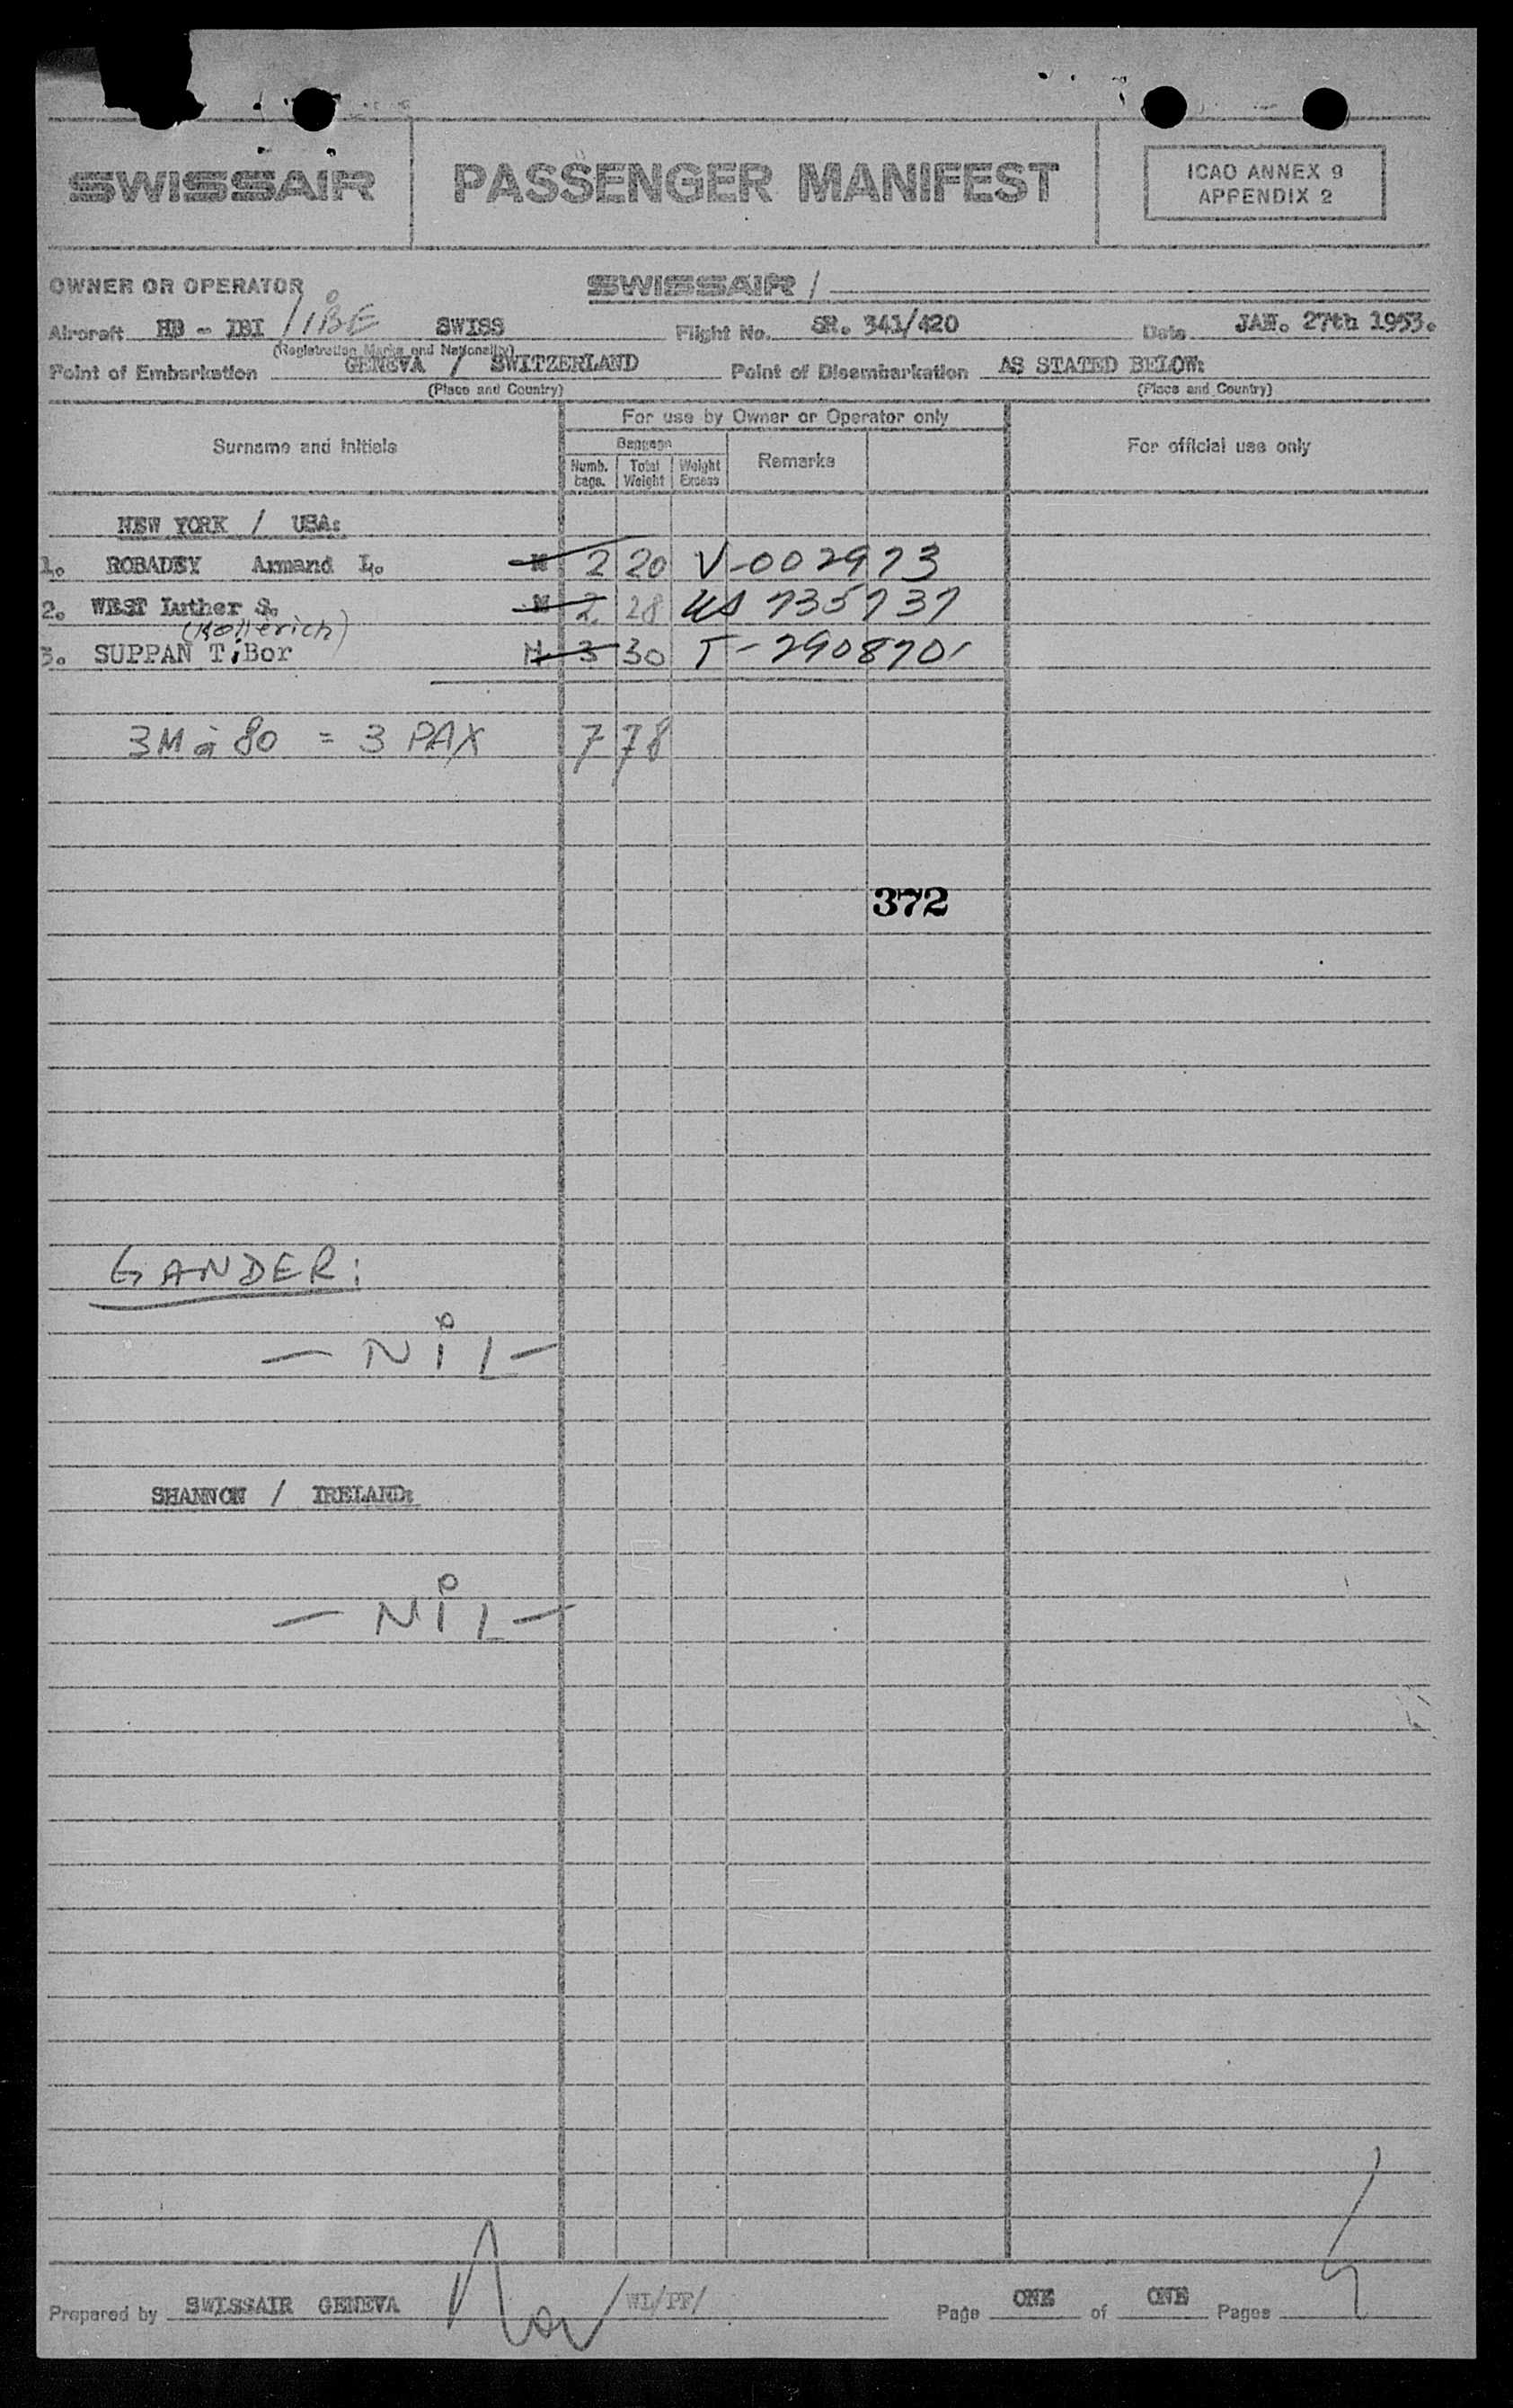 SWISSAIR PASSENGER MANIFEST ICAO ANNEX 9
APPENDIX 2
OWNER OR OPERATOR SWISSAIR /
Aircraft HB - IBI / IBE SWISS Flight No. SR. 341/420 Date JAN. 27th 1953.
(Registration Marks and Nationality)
Point of Embarkation GENEVA / SWITZERLAND Point of Disembarkation AS STATED BELOW:
(Place and Country) (Place and Country)
For use by Owner or Operator only
Surname and Initials Baggage Remarks For official use only
Numb. bags. Total Weight Weight Excess
NEW YORK / USA:
1. ROBADEY Armand L. M 2 20 V-002973
2. WEST Luther S. M 2 28 US 735737
(Kollerich)
3. SUPPAN TiBor M 3 30 T-290870
3M à 80 = 3 PAX 7 78
372
GANDER:
- NIL -
SHANNON / IRELAND:
- NIL -
Prepared by SWISSAIR GENEVA WI/PF/ Page ONE of ONE Pages